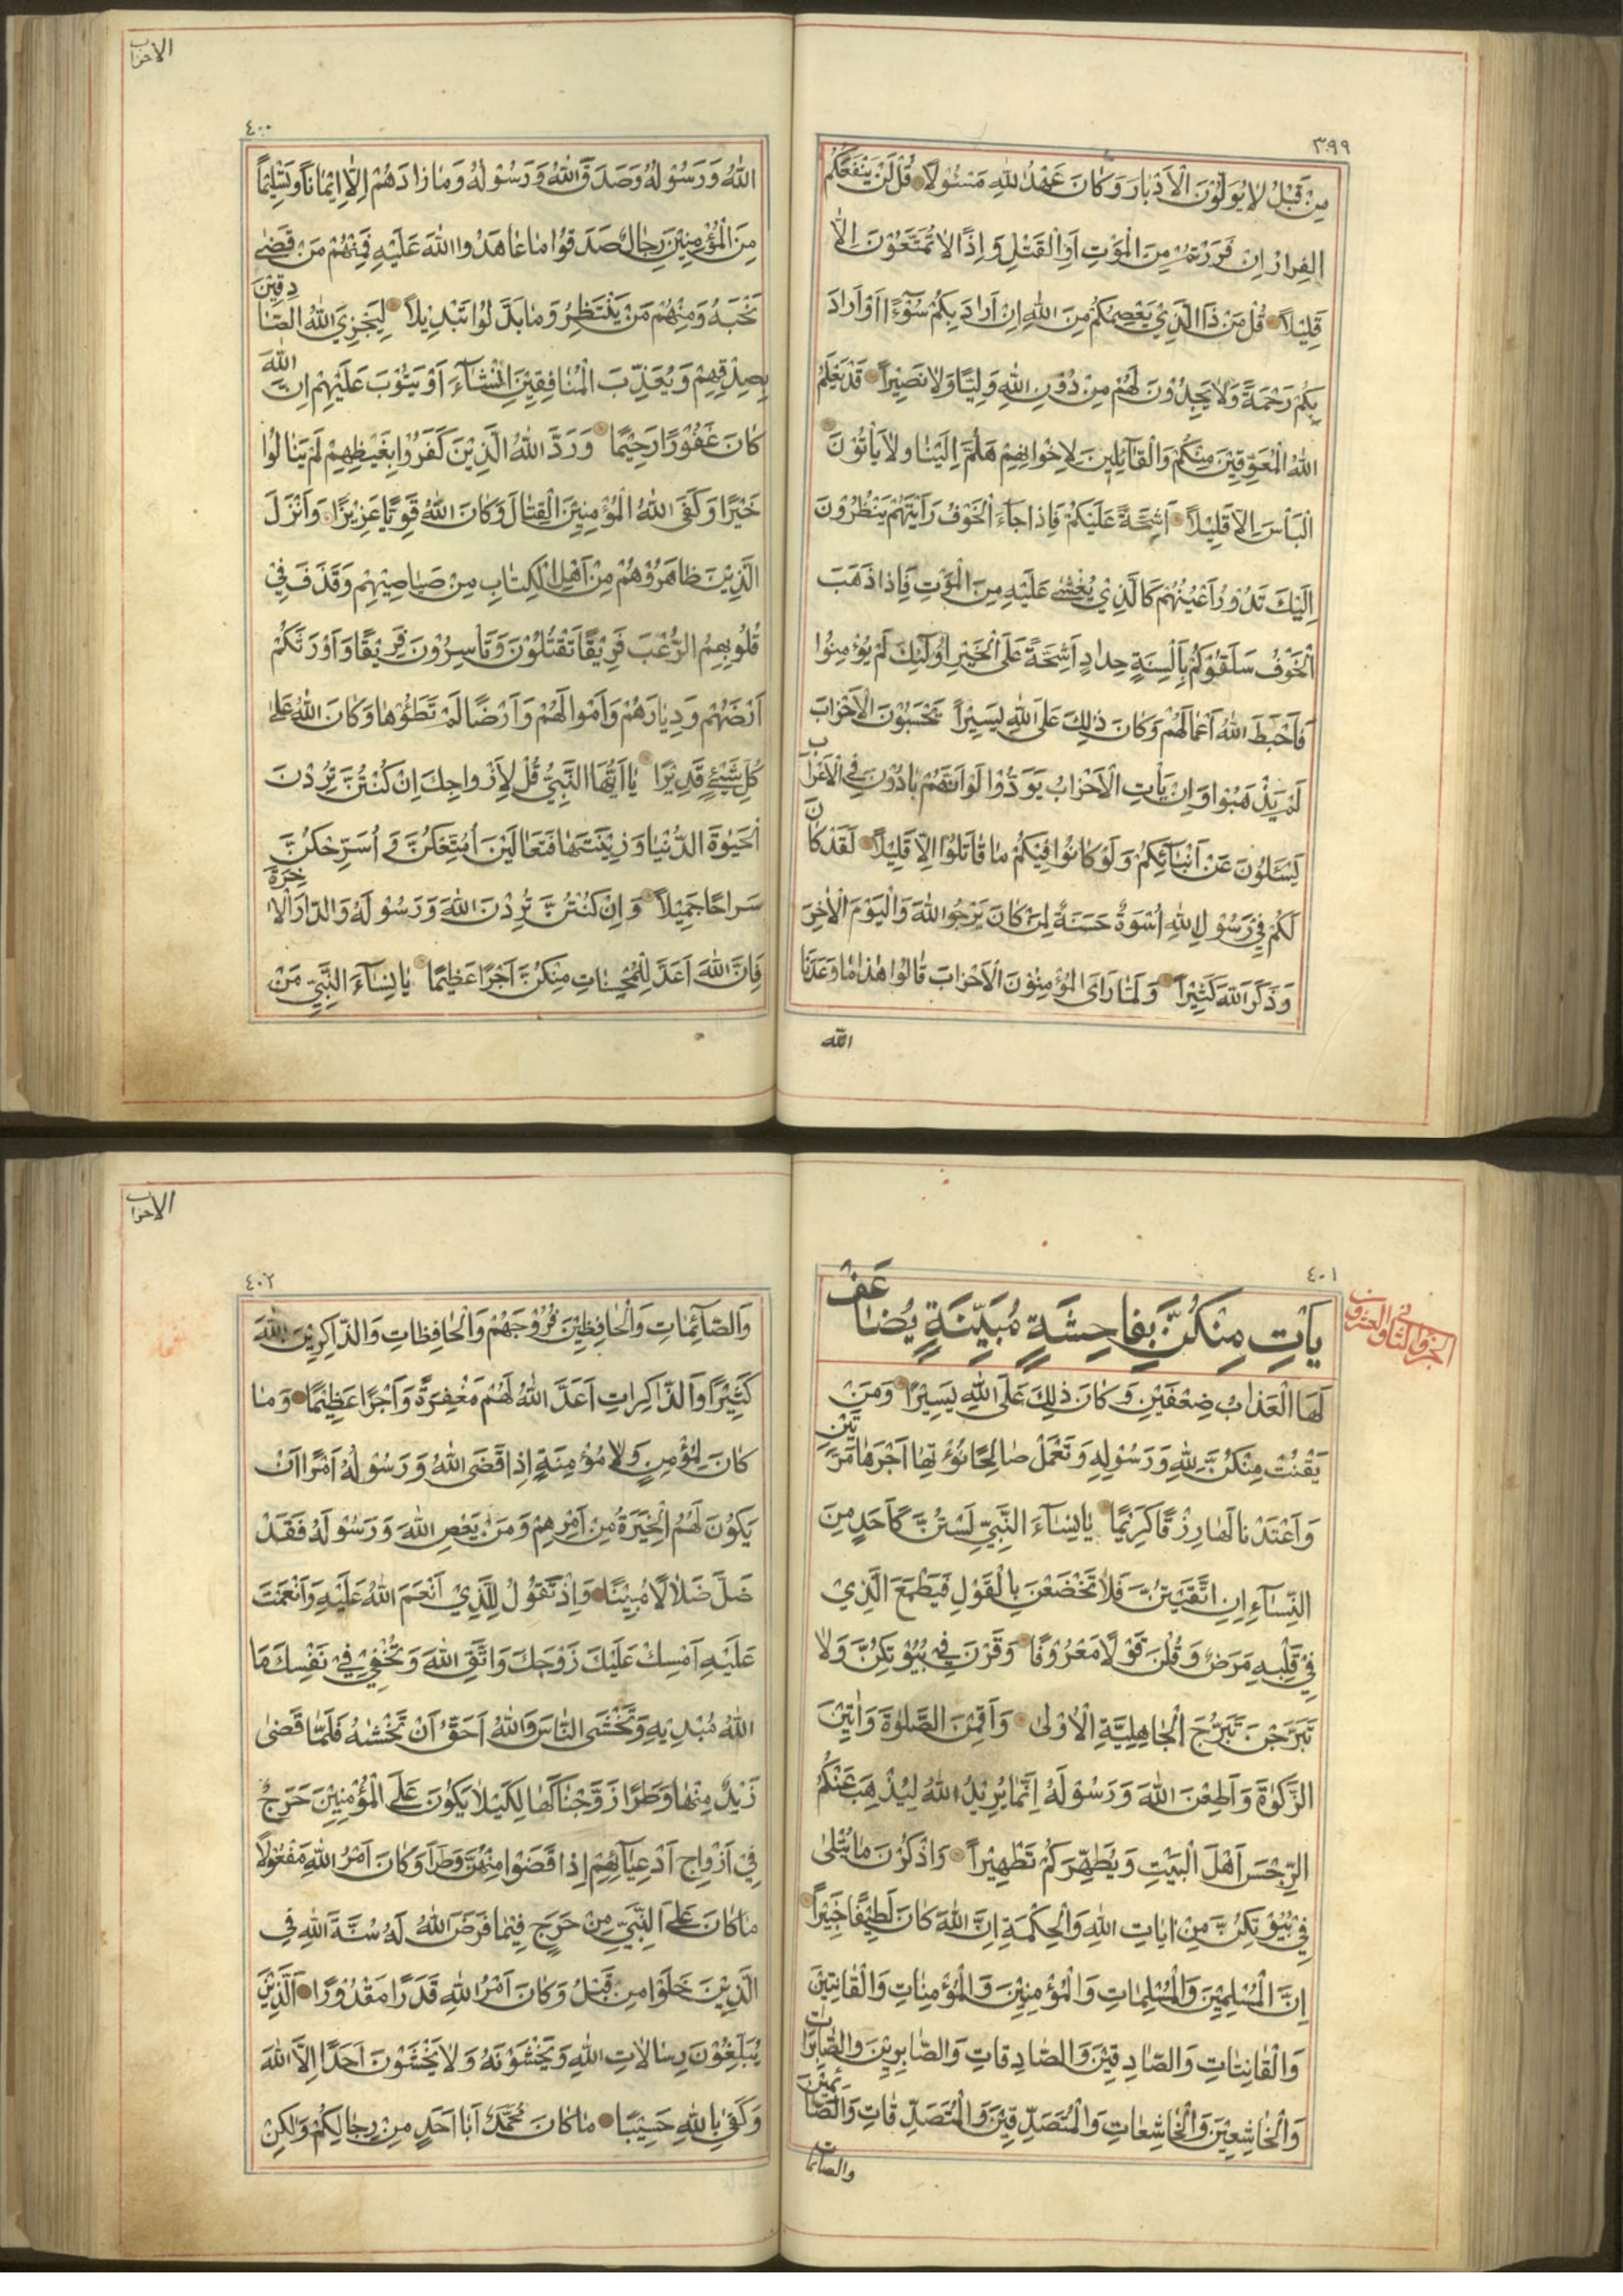 ٣٩٩
مِنْ قَبْلُ لَا يُوَلُّوْنَ الْاَدْبَارَ وَكَانَ عَهْدُ اللّٰهِ مَسْئُولًا قُلْ لَنْ يَنْفَعَكُمْ
الفِرَارُ اِنْ فَرَرْتُمْ مِنَ الْمَوْتِ اَوِ الْقَتْلِ وَاِذًا لَا تُمَتَّعُوْنَ اِلَّا
قَلِيْلًا قُلْ مَنْ ذَا الَّذِيْ يَعْصِمُكُمْ مِنَ اللّٰهِ اِنْ اَرَادَ بِكُمْ سُوْءًا اَوْ اَرَادَ
بِكُمْ رَحْمَةً وَلَا يَجِدُوْنَ لَهُمْ مِنْ دُوْنِ اللّٰهِ وَلِيًّا وَلَا نَصِيْرًا قَدْ يَعْلَمُ
اللّٰهُ الْمُعَوِّقِيْنَ مِنْكُمْ وَالْقَآئِلِيْنَ لِاِخْوَانِهِمْ هَلُمَّ اِلَيْنَا وَلَا يَأْتُوْنَ
الْبَأْسَ اِلَّا قَلِيْلًا اَشِحَّةً عَلَيْكُمْ فَاِذَا جَآءَ الْخَوْفُ رَاَيْتَهُمْ يَنْظُرُوْنَ
اِلَيْكَ تَدُوْرُ اَعْيُنُهُمْ كَالَّذِيْ يُغْشٰى عَلَيْهِ مِنَ الْمَوْتِ فَاِذَا ذَهَبَ
الْخَوْفُ سَلَقُوْكُمْ بِاَلْسِنَةٍ حِدَادٍ اَشِحَّةً عَلَى الْخَيْرِ اُولٰٓئِكَ لَمْ يُؤْمِنُوْا
فَاَحْبَطَ اللّٰهُ اَعْمَالَهُمْ وَكَانَ ذٰلِكَ عَلَى اللّٰهِ يَسِيْرًا يَحْسَبُوْنَ الْاَحْزَابَ
لَمْ يَذْهَبُوْا وَاِنْ يَأْتِ الْاَحْزَابُ يَوَدُّوْا لَوْ اَنَّهُمْ بَادُوْنَ فِى الْاَعْرَابِ
يَسْئَلُوْنَ عَنْ اَنْبَآئِكُمْ وَلَوْ كَانُوْا فِيْكُمْ مَا قَاتَلُوْا اِلَّا قَلِيْلًا لَقَدْ كَانَ
لَكُمْ فِيْ رَسُوْلِ اللّٰهِ اُسْوَةٌ حَسَنَةٌ لِمَنْ كَانَ يَرْجُوا اللّٰهَ وَالْيَوْمَ الْاٰخِرَ
وَذَكَرَ اللّٰهَ كَثِيْرًا وَلَمَّا رَاَى الْمُؤْمِنُوْنَ الْاَحْزَابَ قَالُوْا هٰذَا مَا وَعَدَنَا
اللّٰه
الاحزاب
٤٠٠
اللّٰهُ وَرَسُوْلُهُ وَصَدَقَ اللّٰهُ وَرَسُوْلُهُ وَمَا زَادَهُمْ اِلَّا اِيْمَانًا وَتَسْلِيْمًا
مِنَ الْمُؤْمِنِيْنَ رِجَالٌ صَدَقُوْا مَا عَاهَدُوا اللّٰهَ عَلَيْهِ فَمِنْهُمْ مَنْ قَضٰى
نَحْبَهُ وَمِنْهُمْ مَنْ يَنْتَظِرُ وَمَا بَدَّلُوْا تَبْدِيْلًا لِيَجْزِيَ اللّٰهُ الصَّادِقِيْنَ
بِصِدْقِهِمْ وَيُعَذِّبَ الْمُنَافِقِيْنَ اِنْ شَآءَ اَوْ يَتُوْبَ عَلَيْهِمْ اِنَّ اللّٰهَ
كَانَ غَفُوْرًا رَحِيْمًا وَرَدَّ اللّٰهُ الَّذِيْنَ كَفَرُوْا بِغَيْظِهِمْ لَمْ يَنَالُوْا
خَيْرًا وَكَفَى اللّٰهُ الْمُؤْمِنِيْنَ الْقِتَالَ وَكَانَ اللّٰهُ قَوِيًّا عَزِيْزًا وَاَنْزَلَ
الَّذِيْنَ ظَاهَرُوْهُمْ مِنْ اَهْلِ الْكِتَابِ مِنْ صَيَاصِيْهِمْ وَقَذَفَ فِيْ
قُلُوْبِهِمُ الرُّعْبَ فَرِيْقًا تَقْتُلُوْنَ وَتَأْسِرُوْنَ فَرِيْقًا وَاَوْرَثَكُمْ
اَرْضَهُمْ وَدِيَارَهُمْ وَاَمْوَالَهُمْ وَاَرْضًا لَمْ تَطَؤُهَا وَكَانَ اللّٰهُ عَلٰى
كُلِّ شَيْئٍ قَدِيْرًا يَا اَيُّهَا النَّبِيُّ قُلْ لِاَزْوَاجِكَ اِنْ كُنْتُنَّ تُرِدْنَ
الْحَيٰوةَ الدُّنْيَا وَزِيْنَتَهَا فَتَعَالَيْنَ اُمَتِّعْكُنَّ وَاُسَرِّحْكُنَّ
سَرَاحًا جَمِيْلًا وَاِنْ كُنْتُنَّ تُرِدْنَ اللّٰهَ وَرَسُوْلَهُ وَالدَّارَ الْاٰخِرَةَ
فَاِنَّ اللّٰهَ اَعَدَّ لِلْمُحْسِنَاتِ مِنْكُنَّ اَجْرًا عَظِيْمًا يَا نِسَآءَ النَّبِيِّ مَنْ
٤٠١
الجزو الثانى والعشرون
يَأْتِ مِنْكُنَّ بِفَاحِشَةٍ مُبَيِّنَةٍ يُضَاعَفْ
لَهَا الْعَذَابُ ضِعْفَيْنِ وَكَانَ ذٰلِكَ عَلَى اللّٰهِ يَسِيْرًا وَمَنْ
يَقْنُتْ مِنْكُنَّ لِلّٰهِ وَرَسُوْلِهِ وَتَعْمَلْ صَالِحًا نُؤْتِهَا اَجْرَهَا مَرَّتَيْنِ
وَاَعْتَدْنَا لَهَا رِزْقًا كَرِيْمًا يَا نِسَآءَ النَّبِيِّ لَسْتُنَّ كَاَحَدٍ مِنَ
النِّسَآءِ اِنِ اتَّقَيْتُنَّ فَلَا تَخْضَعْنَ بِالْقَوْلِ فَيَطْمَعَ الَّذِيْ
فِيْ قَلْبِهِ مَرَضٌ وَقُلْنَ قَوْلًا مَعْرُوْفًا وَقَرْنَ فِيْ بُيُوْتِكُنَّ وَلَا
تَبَرَّجْنَ تَبَرُّجَ الْجَاهِلِيَّةِ الْاُوْلٰى وَاَقِمْنَ الصَّلٰوةَ وَاٰتِيْنَ
الزَّكٰوةَ وَاَطِعْنَ اللّٰهَ وَرَسُوْلَهُ اِنَّمَا يُرِيْدُ اللّٰهُ لِيُذْهِبَ عَنْكُمُ
الرِّجْسَ اَهْلَ الْبَيْتِ وَيُطَهِّرَكُمْ تَطْهِيْرًا وَاذْكُرْنَ مَا يُتْلٰى
فِيْ بُيُوْتِكُنَّ مِنْ اٰيَاتِ اللّٰهِ وَالْحِكْمَةِ اِنَّ اللّٰهَ كَانَ لَطِيْفًا خَبِيْرًا
اِنَّ الْمُسْلِمِيْنَ وَالْمُسْلِمَاتِ وَالْمُؤْمِنِيْنَ وَالْمُؤْمِنَاتِ وَالْقَانِتِيْنَ
وَالْقَانِتَاتِ وَالصَّادِقِيْنَ وَالصَّادِقَاتِ وَالصَّابِرِيْنَ وَالصَّابِرَاتِ
وَالْخَاشِعِيْنَ وَالْخَاشِعَاتِ وَالْمُتَصَدِّقِيْنَ وَالْمُتَصَدِّقَاتِ وَالصَّائِمِيْنَ
والصائمات
الاحزاب
٤٠٢
وَالصَّآئِمَاتِ وَالْحَافِظِيْنَ فُرُوْجَهُمْ وَالْحَافِظَاتِ وَالذَّاكِرِيْنَ اللّٰهَ
كَثِيْرًا وَالذَّاكِرَاتِ اَعَدَّ اللّٰهُ لَهُمْ مَغْفِرَةً وَاَجْرًا عَظِيْمًا وَمَا
كَانَ لِمُؤْمِنٍ وَلَا مُؤْمِنَةٍ اِذَا قَضَى اللّٰهُ وَرَسُوْلُهُ اَمْرًا اَنْ
يَكُوْنَ لَهُمُ الْخِيَرَةُ مِنْ اَمْرِهِمْ وَمَنْ يَعْصِ اللّٰهَ وَرَسُوْلَهُ فَقَدْ
ضَلَّ ضَلَالًا مُبِيْنًا وَاِذْ تَقُوْلُ لِلَّذِيْ اَنْعَمَ اللّٰهُ عَلَيْهِ وَاَنْعَمْتَ
عَلَيْهِ اَمْسِكْ عَلَيْكَ زَوْجَكَ وَاتَّقِ اللّٰهَ وَتُخْفِيْ فِيْ نَفْسِكَ مَا
اللّٰهُ مُبْدِيْهِ وَتَخْشَى النَّاسَ وَاللّٰهُ اَحَقُّ اَنْ تَخْشٰهُ فَلَمَّا قَضٰى
زَيْدٌ مِنْهَا وَطَرًا زَوَّجْنَاكَهَا لِكَيْلَا يَكُوْنَ عَلَى الْمُؤْمِنِيْنَ حَرَجٌ
فِيْ اَزْوَاجِ اَدْعِيَآئِهِمْ اِذَا قَضَوْا مِنْهُنَّ وَطَرًا وَكَانَ اَمْرُ اللّٰهِ مَفْعُوْلًا
مَا كَانَ عَلَى النَّبِيِّ مِنْ حَرَجٍ فِيْمَا فَرَضَ اللّٰهُ لَهُ سُنَّةَ اللّٰهِ فِي
الَّذِيْنَ خَلَوْا مِنْ قَبْلُ وَكَانَ اَمْرُ اللّٰهِ قَدَرًا مَقْدُوْرًا اَلَّذِيْنَ
يُبَلِّغُوْنَ رِسَالَاتِ اللّٰهِ وَيَخْشَوْنَهُ وَلَا يَخْشَوْنَ اَحَدًا اِلَّا اللّٰهَ
وَكَفٰى بِاللّٰهِ حَسِيْبًا مَا كَانَ مُحَمَّدٌ اَبَا اَحَدٍ مِنْ رِجَالِكُمْ وَلٰكِنْ